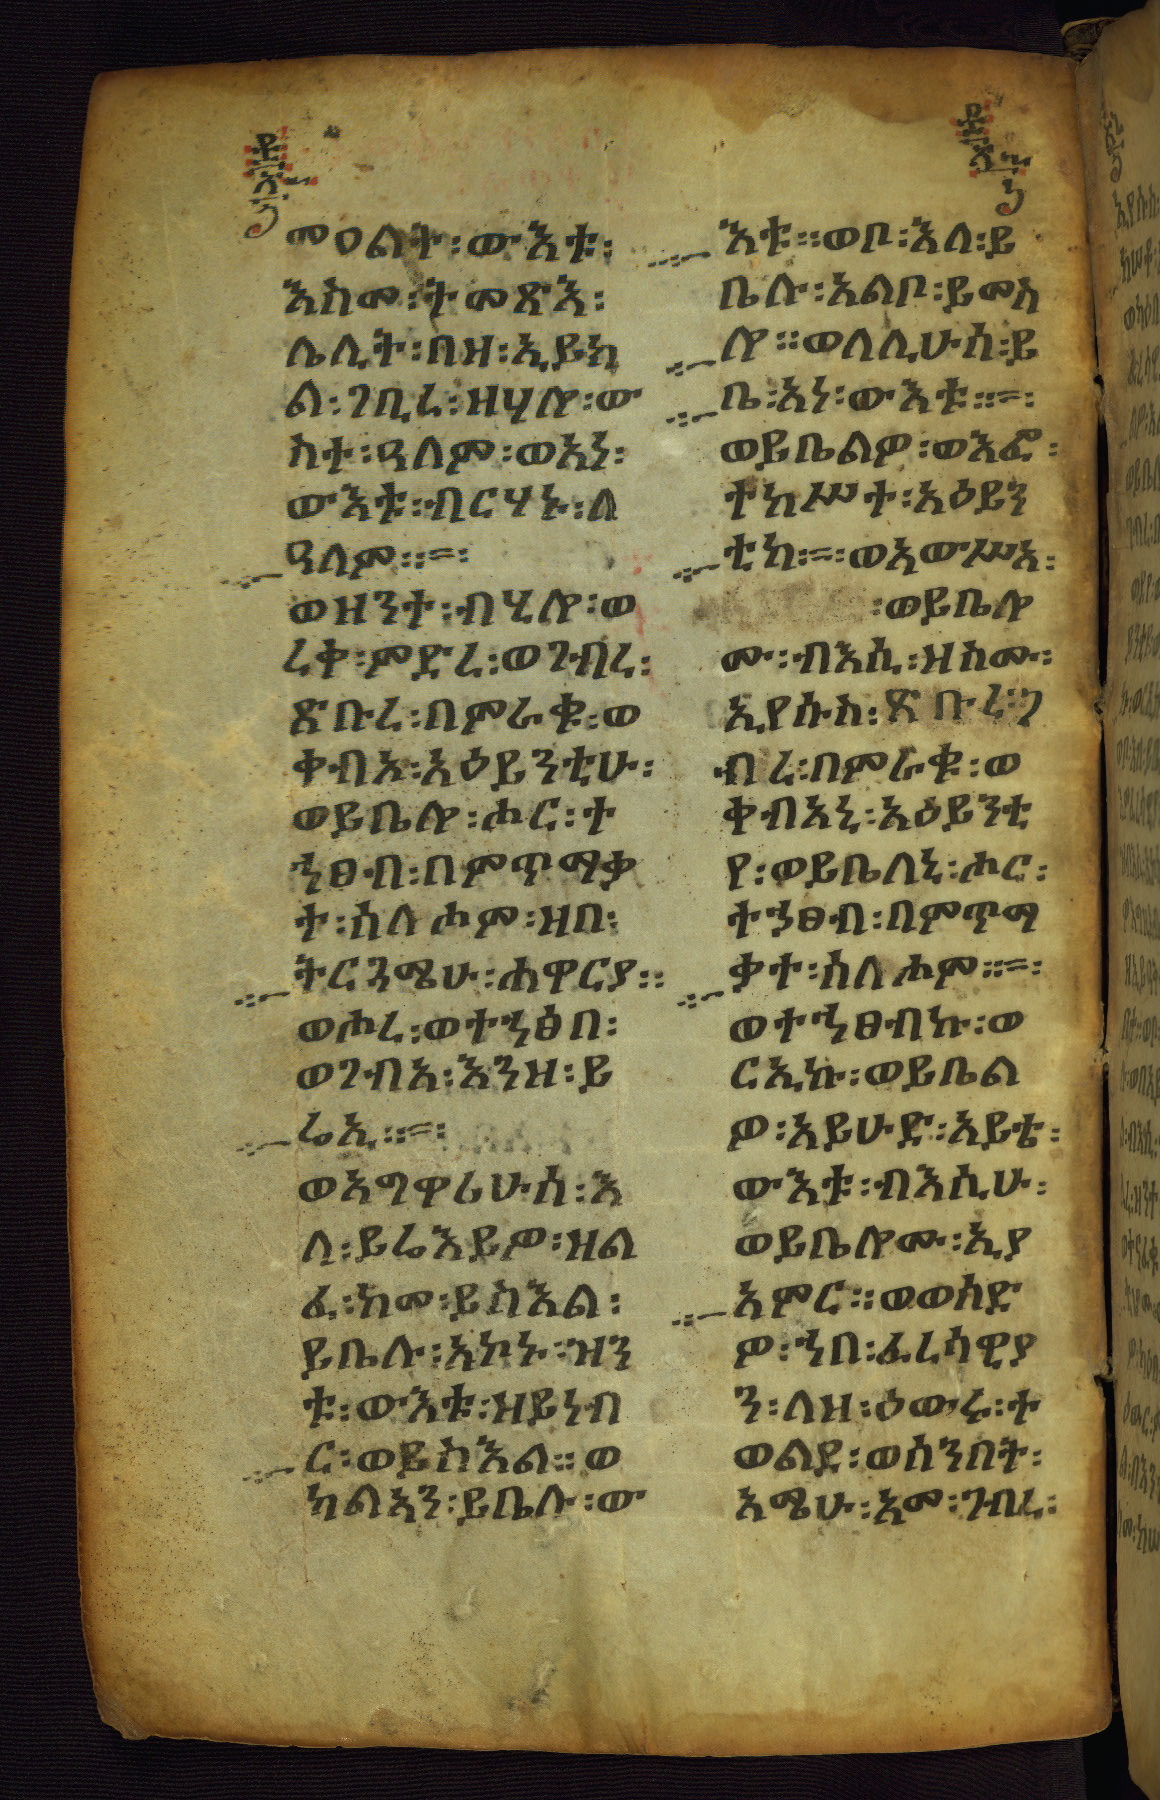 መዐልት፡ውእቱ፡
እስመ፡ትመጽእ፡
ሌሊት፡በዘ፡ኢይክ
ል፡ገቢረ፡ዘሃሎ፡ው
ስተ፡ዓለም፡ወአነ፡
ውእቱ፡ብርሃኑ፡ለ
ዓለም።=፡
ወዘንተ፡ብሂሎ፡ወ
ረቀ፡ምድረ፡ወገብረ፡
ጽቡረ፡በምራቁ፡ወ
ቀብአ፡አዕይንቲሁ፡
ወይቤሎ፡ሑር፡ተ
ኀፀብ፡በምጥማቃ
ት፡ሰሊሖም፡ዝበ፡
ትርጓሜሁ፡ሐዋርያ።
ወሖረ፡ወተኀፅበ፡
ወገብአ፡እንዘ፡ይ
ሬኢ።=፡
ወአግዋሪሁሰ፡እ
ለ፡ይሬእይዎ፡ዘል
ፈ፡ከመ፡ይስእል፡
ይቤሉ፡አኮኑ፡ዝን
ቱ፡ውእቱ፡ዘይነብ
ር፡ወይስእል።ወ
ካልአን፡ይቤሉ፡ው
እቱ።ወቦ፡እለ፡ይ
ቤሉ፡አልቦ፡ይመስ
ሎ።ወለሊሁሰ፡ይ
ቤ፡አነ፡ውእቱ።=፡
ወይቤልዎ፡ወእፎ፡
ተከሥተ፡አዕይን
ቲከ፡=፡ወአውሥአ፡
፡ወይቤሎ
ሙ፡ብእሲ፡ዘስሙ፡
ኢየሱስ፡ጽቡረ፡ገ
ብረ፡በምራቁ፡ወ
ቀብአኒ፡አዕይንቲ
የ፡ወይቤለኒ፡ሑር፡
ተኃፀብ፡በምጥማ
ቃተ፡ሰሊሖም።=፡
ወተኀፀብኩ፡ወ
ርኢኩ፡ወይቤል
ዎ፡አይሁድ፡አይቴ፡
ውእቱ፡ብእሲሁ፡
ወይቤሎሙ፡ኢያ
አምር።ወወሰድ
ዎ፡ኀበ፡ፈሪሳዊያ
ን፡ለዝ፡ዕውሩ፡ተ
ወልደ፡ወሰንበት፡
አሜሁ፡አመ፡ገብረ፡